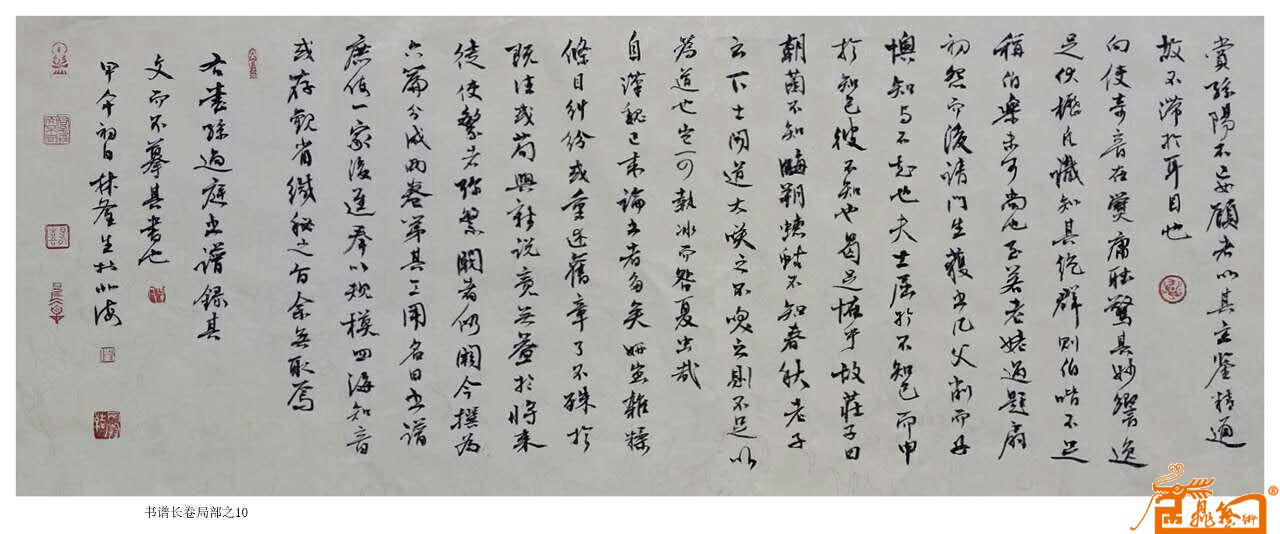 賞孫陽不妄顧者以其玄鑒精通
故不滞於耳目也
向使奇音在爨庸聴驚其妙響逸
足伏櫪凡識知其絶群則伯喈不足
稱伯樂未可尚也至若老姥遇題扇
初怨而後請門生獲書几父削而子
懊知与不知也夫士屈於不知己而申
於知己彼不知也曷足怪乎故莊子曰
朝菌不知晦朔蟪蛄不知春秋老子
云下士聞道大咲之不咲之則不足以
為道也豈可執冰而咎夏虫哉
自漢魏已来論書者多矣妍蚩雜糅
條目糾紛或重述舊章了不殊於
既往或苟興新説竟無益於將来
徒使繁者弥繁闕者仍闕今撰為
六篇分成兩卷第其工用名曰書譜
庶使一家後進奉以規模四海知音
或存觀省緘秘之旨余無取焉
右書孫過庭書譜録其
文而不摹其書也
甲午初日林 生於北海
书谱长卷局部之10